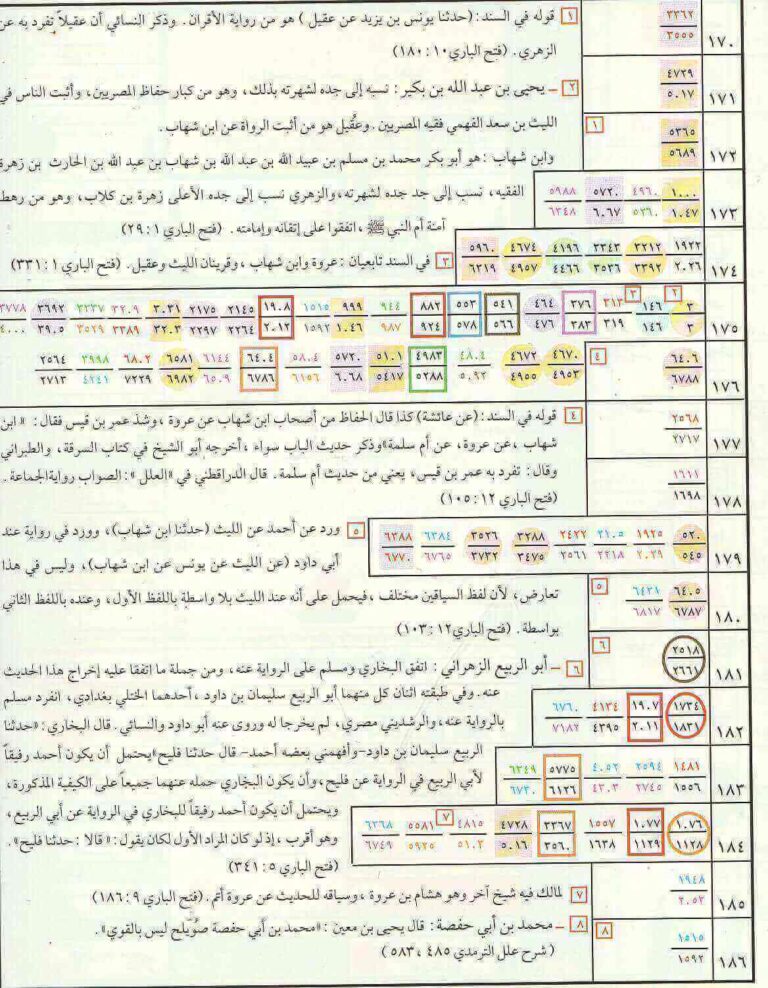 ١٧٠
٣٣٦٢
٣٥٥٥
١ قوله في السند: (حدثنا يونس بن يزيد عن عقيل) هو من رواية الأقران. وذكر النسائي أن عقيلاً تفرد به عن
الزهري. (فتح الباري ١٠: ١٨٠)
١٧١
٤٧٣٩
٥٠١٧
٢ – يحيى بن عبد الله بن بكير: نسبه إلى جده لشهرته بذلك، وهو من كبار حفاظ المصريين، وأثبت الناس في
الليث بن سعد الفهمي فقيه المصريين. وعُقَيل هو من أثبت الرواة عن ابن شهاب.
١٧٢
٥٣٦٥
٥٦٨٩
١
وابن شهاب: هو أبو بكر محمد بن مسلم بن عبيد الله بن عبد الله بن شهاب بن عبد الله بن الحارث بن زهرة
الفقيه، نسب إلى جد جده لشهرته، والزهري نسب إلى جده الأعلى زهرة بن كلاب، وهو من رهط
آمنة أم النبي ﷺ، اتفقوا على إتقانه وإمامته. (فتح الباري ١: ٢٩)
١٧٣
١٠٠٠ ٤٩٦٠ ٥٧٢٠ ٥٩٨٨
١٠٤٧ ٥٢٦٠ ٦٠٦٧ ٦٣٤٨
١٧٤
١٩٢٢ ٣٢١٢ ٣٣٤٣ ٤١٩٦ ٤٦٧٤ ٥٩٦٠
٢٠٢٦ ٣٣٩٢ ٣٥٣٦ ٤٤٦٦ ٤٩٥٧ ٦٣١٩
٣ في السند تابعيان: عروة وابن شهاب، وقرينان الليث وعقيل. (فتح الباري ١: ٣٣١)
١٧٥
٢ ٣
٣ ١٤٦ ٣١٣ ٣٧٦ ٤٦٤ ٥٤١ ٥٥٣ ٨٨٢ ٩٤٤ ٩٩٩ ١٥١٥ ١٩٠٨ ٢١٤٥ ٢١٧٥ ٣٠٣١ ٣٢٠٩ ٣٣٣٧ ٣٦٩٢ ٣٧٧٨
٣ ١٤٦ ٣١٩ ٣٨٣ ٤٧٦ ٥٦٦ ٥٧٨ ٩٢٤ ٩٨٧ ١٠٤٦ ١٥٩٢ ٢٠١٢ ٢٢٦٤ ٢٢٩٧ ٣٢٠٣ ٣٣٨٩ ٣٥٢٩ ٣٩٠٥ ٤٠٠٠
١٧٦
٦٤٠٦
٦٧٨٨
٤
٤٦٧٠ ٤٦٧٢ ٤٨٠٤ ٤٩٨٣ ٥١٠١ ٥٧٢٠ ٥٨٠٤ ٦٤٠٤ ٦١٤٤ ٦٥٨١ ٦٨٠٢ ٣٩٩٨ ٢٥٦٤
٤٩٥٣ ٤٩٥٥ ٥٠٩٢ ٥٢٨٨ ٥٤١٧ ٦٠٦٨ ٦١٥٦ ٦٧٨٦ ٦٥٠٩ ٦٩٨٢ ٧٢٢٩ ٤٢٤١ ٢٧١٣
١٧٧
٢٥٦٨
٢٧١٧
٤ قوله في السند: (عن عائشة) كذا قال الحفاظ من أصحاب ابن شهاب عن عروة، وشذ عمر بن قيس فقال: «ابن
شهاب، عن عروة، عن أم سلمة» وذكر حديث الباب سواء، أخرجه أبو الشيخ في كتاب السرقة، والطبراني
١٧٨
١٦١١
١٦٩٨
وقال: تفرد به عمر بن قيس، يعني من حديث أم سلمة. قال الدراقطني في «العلل»: الصواب رواية الجماعة.
(فتح الباري ١٢: ١٠٥)
١٧٩
٥٢٠ ١٩٢٥ ٢١٠٥ ٢٤٢٢ ٣٢٨٨ ٣٥٢٦ ٦٣٨٤ ٦٣٨٨
٥٤٥ ٢٠٢٩ ٢٢١٨ ٢٥٦١ ٣٤٧٥ ٣٧٣٢ ٦٧٦٥ ٦٧٧٠
٥ ورد عن أحمد عن الليث (حدثنا ابن شهاب)، وورد في رواية عند
أبي داود (عن الليث عن يونس عن ابن شهاب)، وليس في هذا
١٨٠
٦٤٠٥ ٦٤٣١
٦٧٨٧ ٦٨١٧
٥
تعارض، لأن لفظ السياقين مختلف، فيحمل على أنه عند الليث بلا واسطة باللفظ الأول، وعنده باللفظ الثاني
بواسطة. (فتح الباري ١٢: ١٠٣)
١٨١
٢٥١٨
٢٦٦١
٦
٦ – أبو الربيع الزهراني: اتفق البخاري ومسلم على الرواية عنه، ومن جملة ما اتفقا عليه إخراج هذا الحديث
عنه. وفي طبقته اثنان كل منهما أبو الربيع سليمان بن داود، أحدهما الختلي بغدادي، انفرد مسلم
١٨٢
١٧٣٤ ١٩٠٧ ٤١٣٤ ٦٧٦٠
١٨٣١ ٢٠١١ ٤٣٩٥ ٧١٨٢
بالرواية عنه، والرشديني مصري، لم يخرجا له وروى عنه أبو داود والنسائي. قال البخاري: «حدثنا
الربيع سليمان بن داود–وأفهمني بعضه أحمد– قال حدثنا فليح» يحتمل أن يكون أحمد رفيقاً
١٨٣
١٤٨١ ٢٥٩٤ ٤٠٥٢ ٥٧٧٥ ٦٣٤٩
١٥٥٦ ٢٧٤٥ ٤٣٠٣ ٦١٢٦ ٦٧٣٠
لأبي الربيع في الرواية عن فليح، وأن يكون البخاري حمله عنهما جميعاً على الكيفية المذكورة،
ويحتمل أن يكون أحمد رفيقاً للبخاري في الرواية عن أبي الربيع،
١٨٤
٧
١٠٧٦ ١٠٧٧ ١٥٥٧ ٣٣٦٧ ٤٧٢٨ ٤٨١٥ ٥٥٨١ ٦٣٦٨
١١٢٨ ١١٢٩ ١٦٣٨ ٣٥٦٠ ٥٠١٦ ٥١٠٣ ٥٩٢٥ ٦٧٤٩
وهو أقرب، إذ لو كان المراد الأول لكان يقول: «قالا: حدثنا فليح».
(فتح الباري ٥: ٣٤١)
١٨٥
١٩٤٨
٢٠٥٢
٧ لمالك فيه شيخ آخر وهو هشام بن عروة، وسياقه للحديث عن عروة أتم. (فتح الباري ٩: ١٨٦)
١٨٦
١٥١٥
١٥٩٢
٨
٨ – محمد بن أبي حفصة: قال يحيى بن معين: «محمد بن أبي حفصة صُوَيلح ليس بالقوي».
(شرح علل الترمدي ٤٨٥، ٥٨٣)